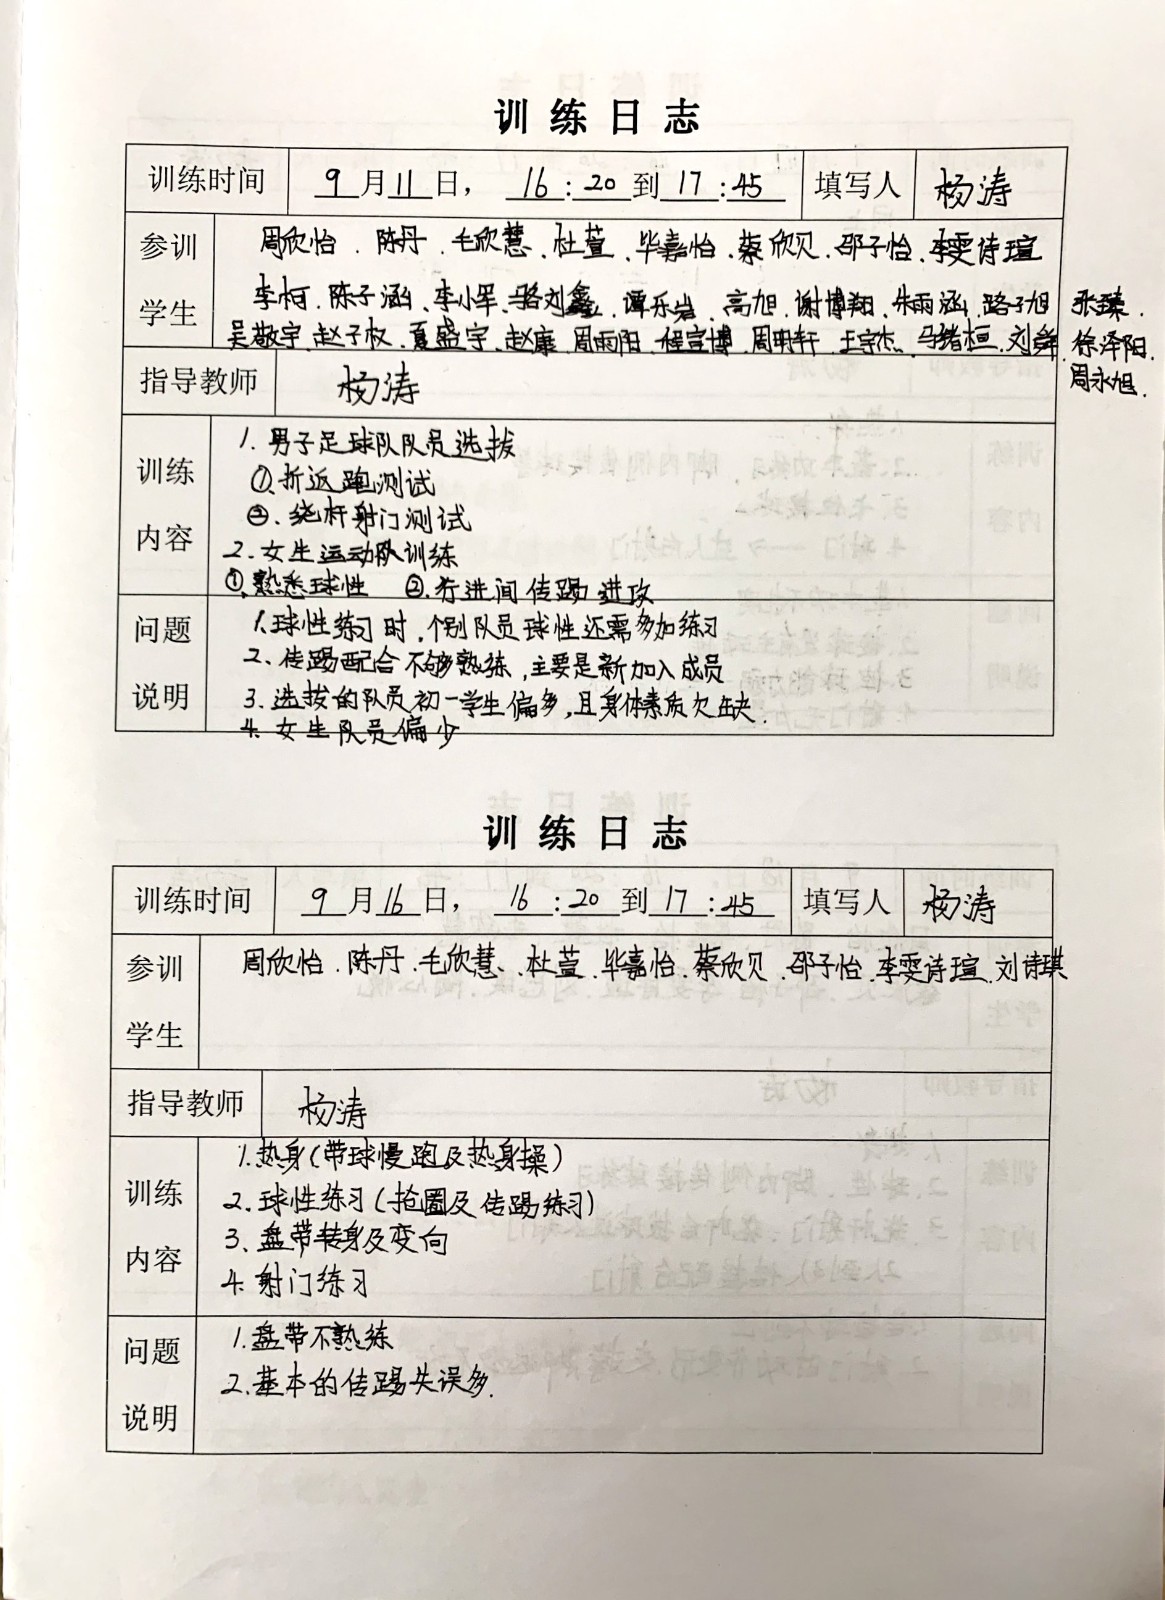 训练日志
训练时间 9月11日, 16:20到17:45 填写人 杨涛
参训学生 周欣怡.陈丹.毛欣慧.杜萱.毕嘉怡.蔡欣贝.邵子怡.李雯诗瑄
李柯.陈子涵.李小军.骆刘鑫.谭乐岩.高旭.谢博翔.朱雨涵.路子旭 张臻.
吴敬宇.赵子权.夏盛宇.赵康.周雨阳.程宣博.周明轩.王宗杰.马绪桓.刘舜.徐泽阳.
周永旭.
指导教师 杨涛
训练内容 1.男子足球队队员选拔
①.折返跑测试
②.绕杆射门测试
2.女生运动队训练
①.熟悉球性 ②.行进间传踢进攻
问题说明 1.球性练习时,个别队员球性还需多加练习
2.传踢配合不够熟练,主要是新加入成员
3.选拔的队员初一学生偏多,且身体素质欠缺.
4.女生队员偏少
训练日志
训练时间 9月16日, 16:20到17:45 填写人 杨涛
参训学生 周欣怡.陈丹.毛欣慧.杜萱.毕嘉怡.蔡欣贝.邵子怡.李雯诗瑄.刘诗琪
指导教师 杨涛
训练内容 1.热身(带球慢跑及热身操)
2.球性练习(抢圈及传踢练习)
3.盘带转身及变向
4.射门练习
问题说明 1.盘带不熟练
2.基本的传踢失误多.